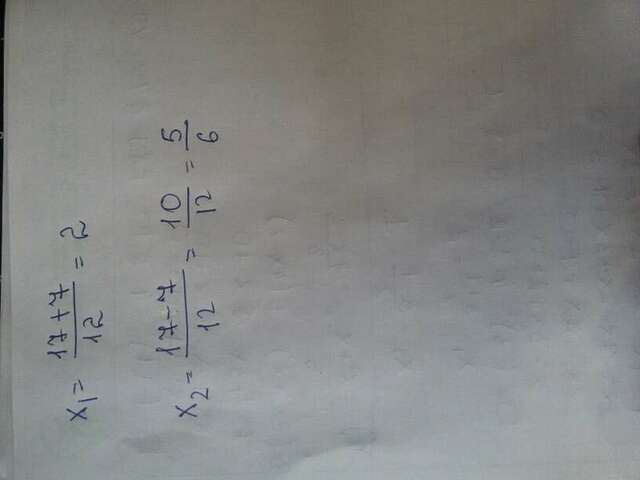 x₁ = (17+7)/12 = 2
x₂ = (17-7)/12 = 10/12 = 5/6